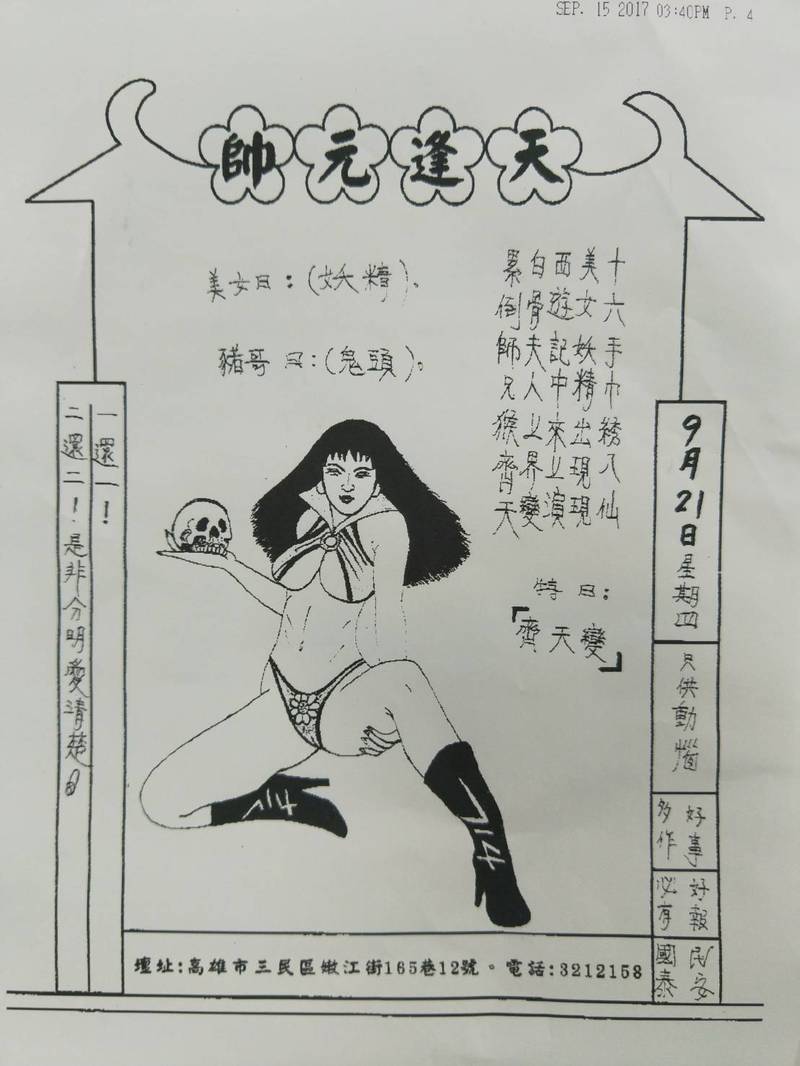 SEP. 15 2017 03:40PM P. 4
天逢元帥
十六手巾綉八仙
美女妖精出現現
西遊記中來㞢演
白骨夫人㞢界變
累倒師兄猴齊天
美女曰：(妖精)。
豬哥曰：(鬼頭)。
特曰：
「齊天變」
9月21日星期四
只供動惱
好事
多作
好報
必有
民安
國泰
一還一！
二還二！是非分明愛清楚。
714
714
壇址:高雄市三民區嫩江街165巷12號。電話:3212158